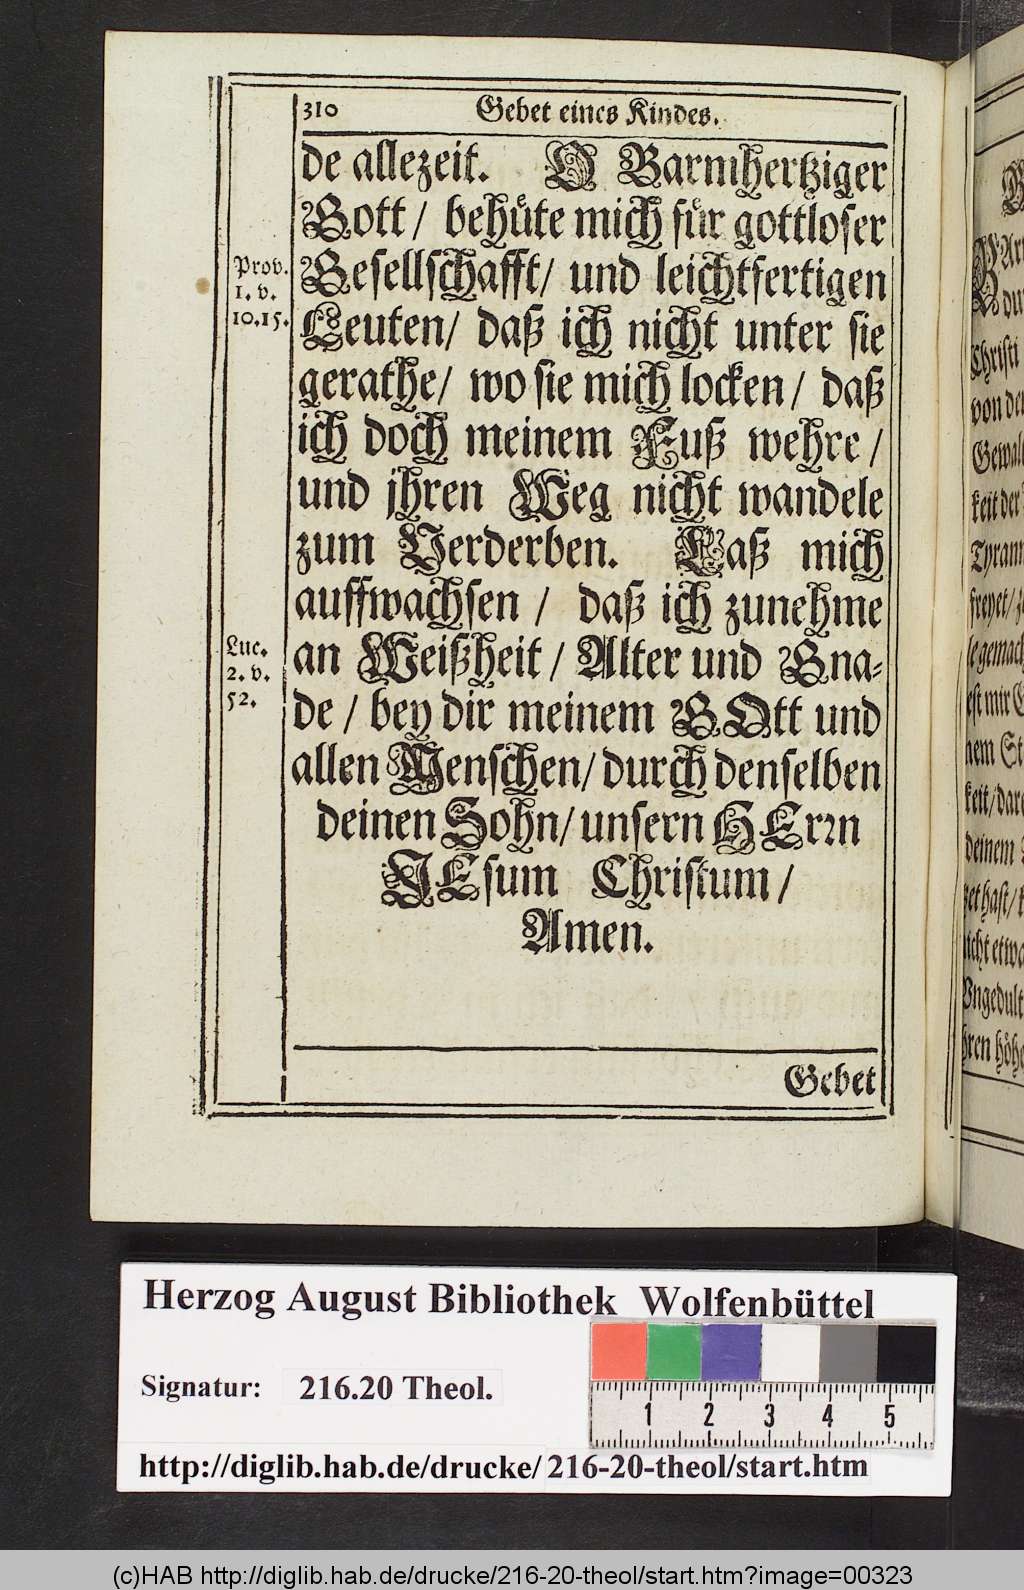 310 Gebet eines Kindes.
de allezeit. O Barmhertziger
Gott / behüte mich für gottloser
Gesellschafft / und leichtfertigen
Prov.
1. v.
10.15.
Leuten / daß ich nicht unter sie
gerathe / wo sie mich locken / daß
ich doch meinem Fuß wehre /
und jhren Weg nicht wandele
zum Verderben. Laß mich
auffwachsen / daß ich zunehme
an Weißheit / Alter und Gna-
Luc.
2. v.
52.
de / bey dir meinem GOtt und
allen Menschen / durch denselben
deinen Sohn / unsern HErrn
JEsum Christum /
Amen.
Gebet
Christi
von der
Gewal
keit der
Tyrann
freyet /
le gemach
est mir
nem St
keit / dar
deinem
et hast /
nicht etwa
Ungedult
hren höhe
Herzog August Bibliothek Wolfenbüttel
Signatur: 216.20 Theol.
1 2 3 4 5
http://diglib.hab.de/drucke/ 216-20-theol/start.htm
(c)HAB http://diglib.hab.de/drucke/216-20-theol/start.htm?image=00323